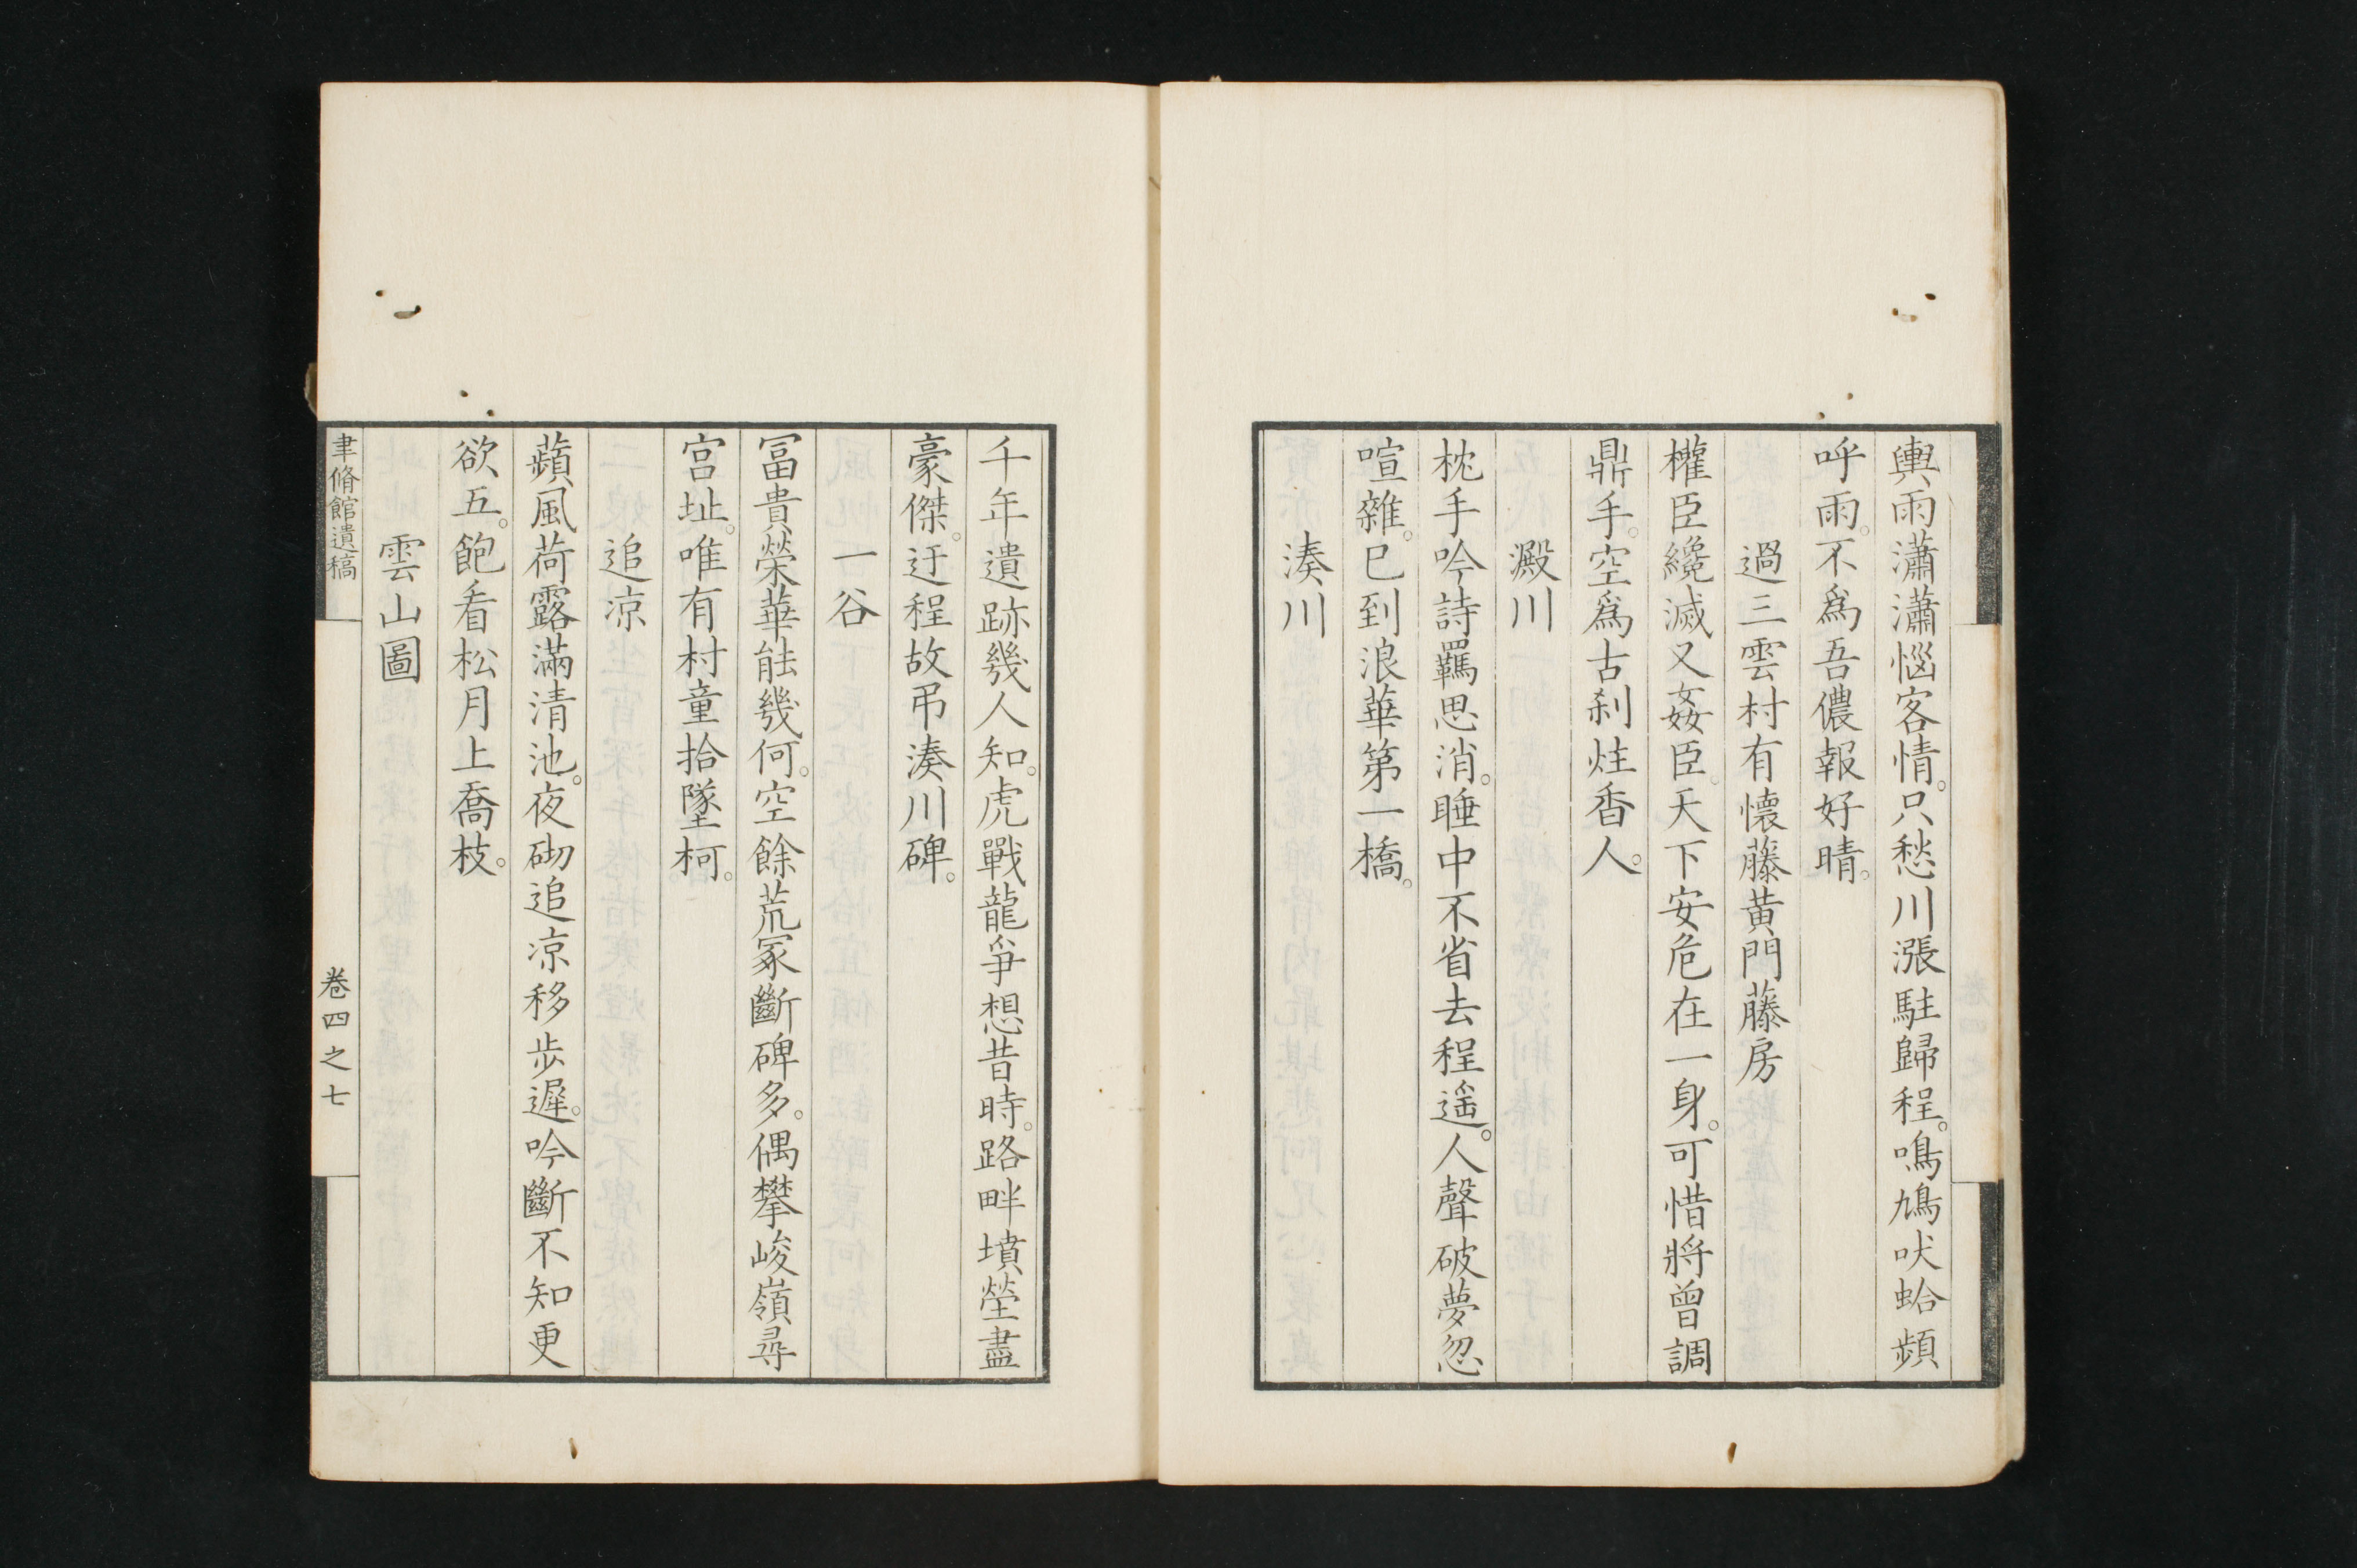 輿雨瀟瀟惱客情。只愁川漲駐歸程。鳴鳩吠蛤頻
呼雨。不爲吾儂報好晴。
過三雲村有懷藤黃門藤房
權臣纔滅又姦臣。天下安危在一身。可惜將曾調
鼎手。空爲古刹炷香人。
澱川
枕手吟詩羈思消。睡中不省去程遥。人聲破夢忽
喧雜。已到浪華第一橋。
湊川
千年遺跡幾人知。虎戰龍爭想昔時。路畔墳塋盡
豪傑。迂程故弔湊川碑。
一谷
冨貴榮華能幾何。空餘荒冢斷碑多。偶攀峻嶺尋
宮址。唯有村童拾墜柯。
追凉
蘋風荷露滿清池。夜砌追凉移歩遲。吟斷不知更
欲五。飽看松月上喬枝。
雲山圖
聿脩館遺稿
卷四之七